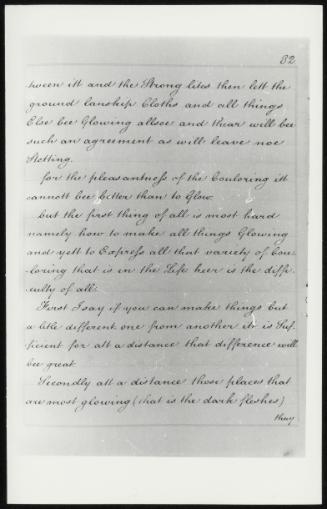 82
tween itt and the Strong lites then lett the
ground lanskip Cloths and all things
Else bee Glowing allsoe and thear will bee
such an agreement as will leave noe
Stotting.
for the pleasantness of the Couloring itt
cannott bee better than to Glow
but the first thing of all is most hard
namely how to make all things Glowing
and yett to Express all that variety of Cou-
-loring that is in the Life heer is the diffi-
-culty of all:
First I say if you can make things but
a litle different one from another it is Suf-
ficient for att a distance that difference will
bee great
Secondly att a distance those places that
are most glowing (that is the dark fleshes)
thay